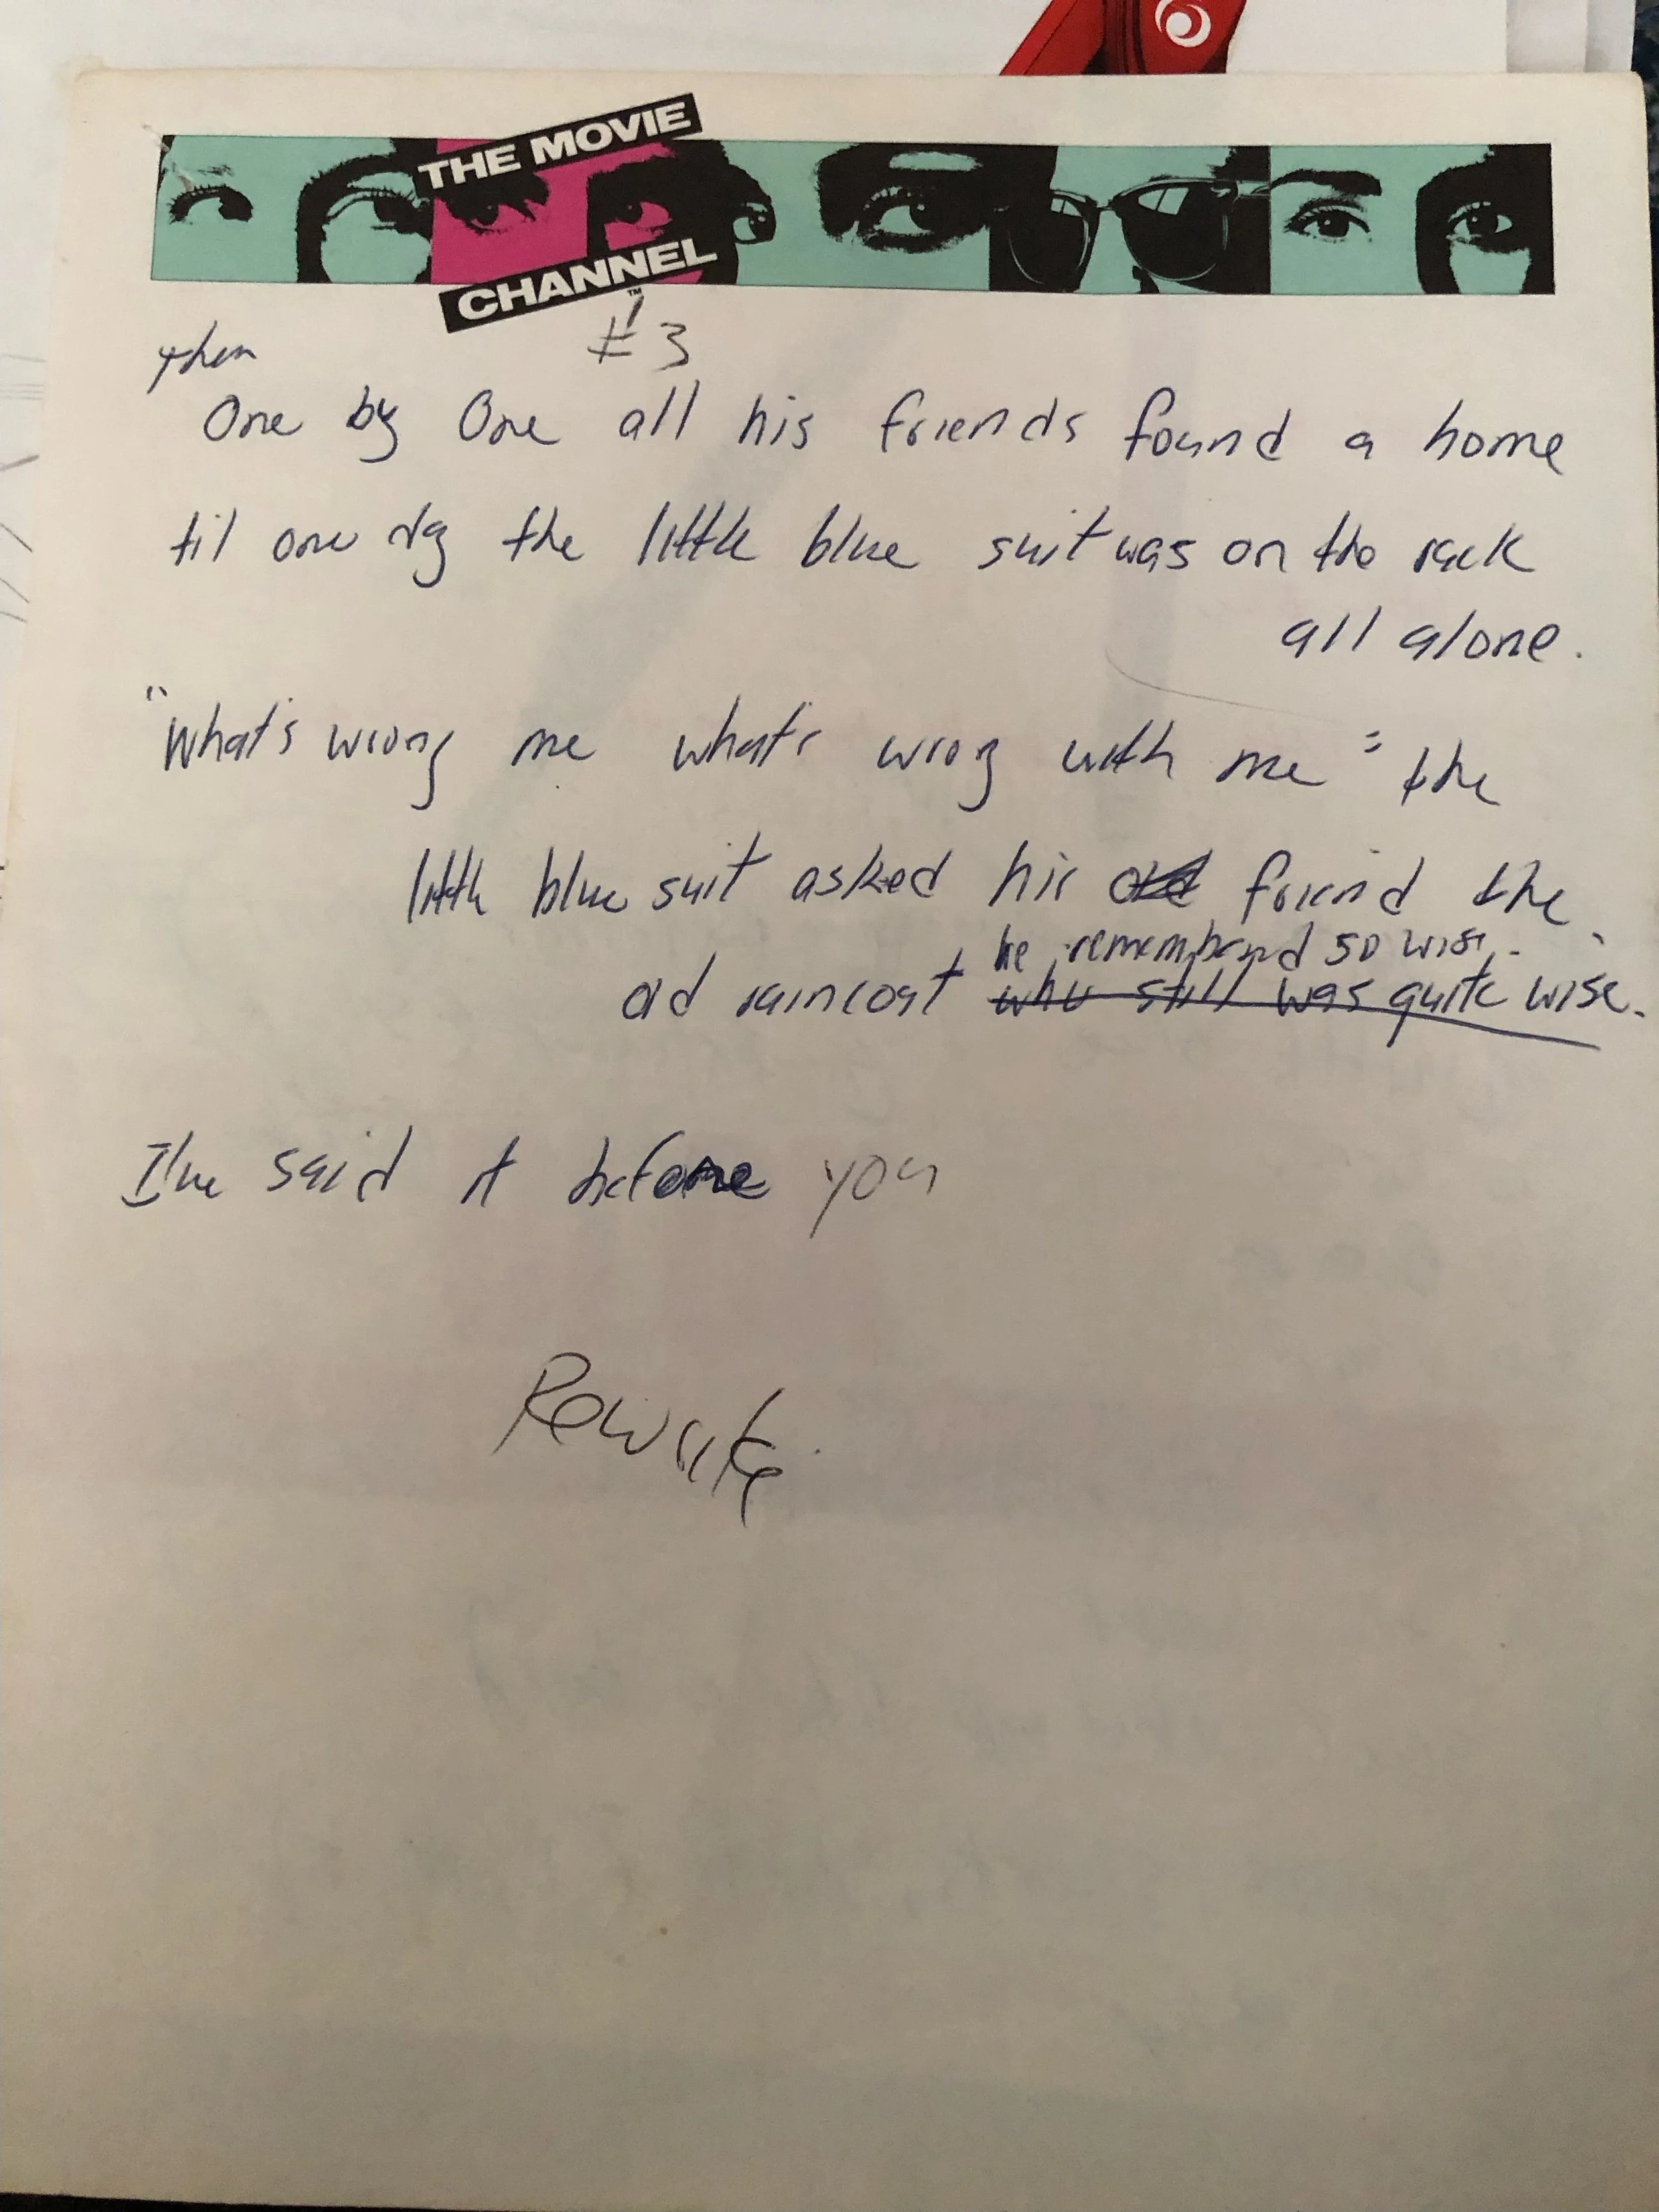 THE MOVIE
CHANNEL
™
#3
then
One by One all his friends found a home
til one dy the little blue suit was on the rack
all alone.
"What's wrong me what's wrog with me" the
little blue suit asked his old friend the
he remembered so wise.
old raincoat who still was quite wise.
I've said it before you
Rewrite